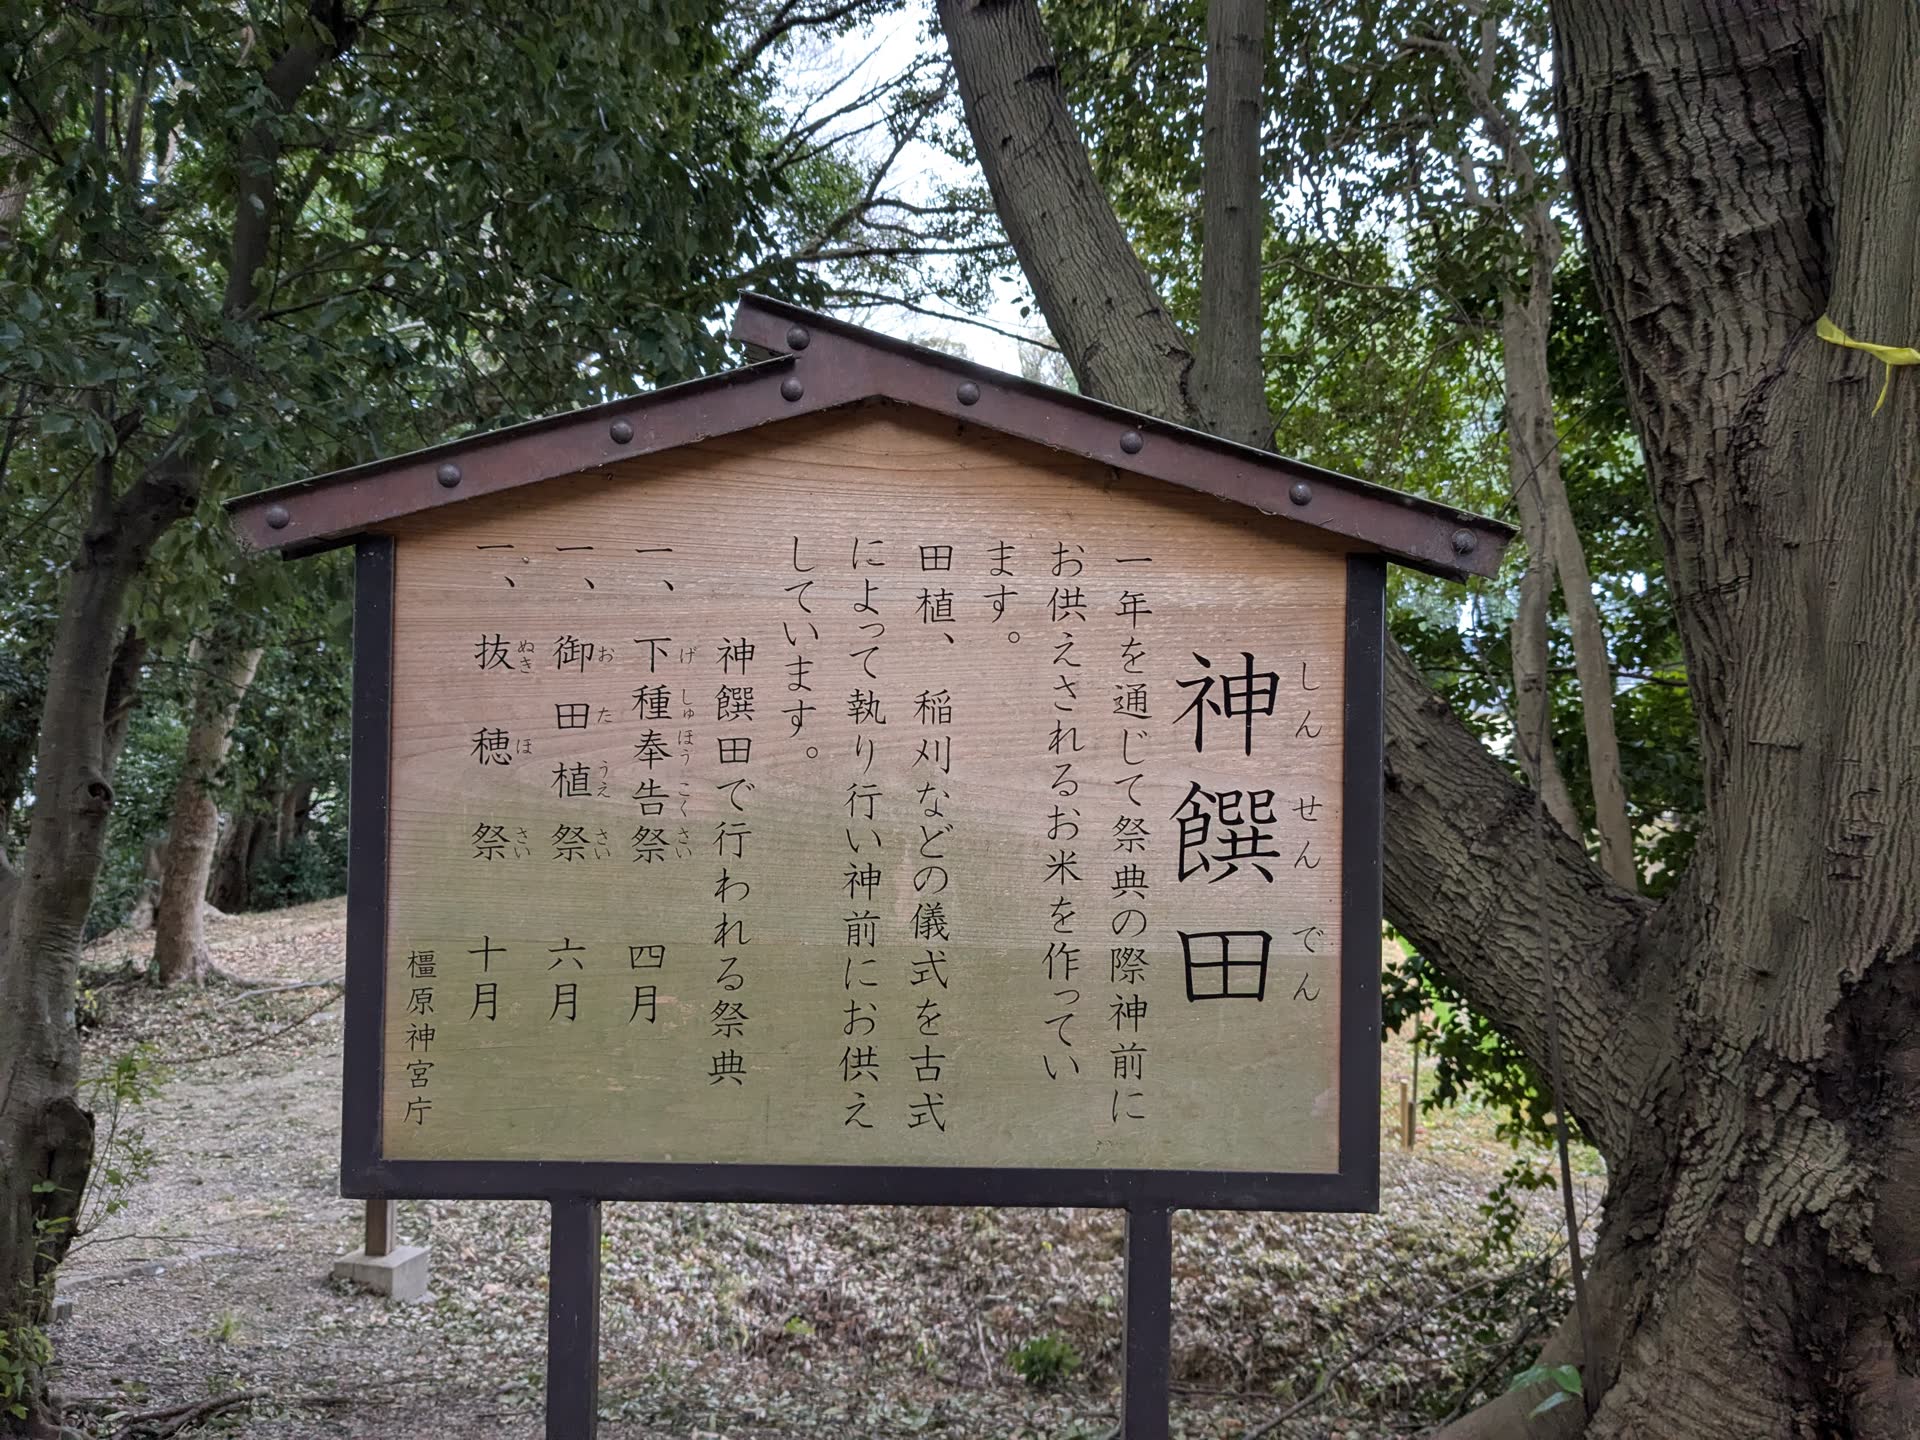 神饌田
しんせんでん
一年を通じて祭典の際神前に
お供えされるお米を作ってい
ます。
田植、稲刈などの儀式を古式
によって執り行い神前にお供え
しています。
神饌田で行われる祭典
一、下種奉告祭 四月
げしゅほうこくさい
一、御田植祭 六月
おたうえさい
一、抜穂祭 十月
ぬきほさい
橿原神宮庁